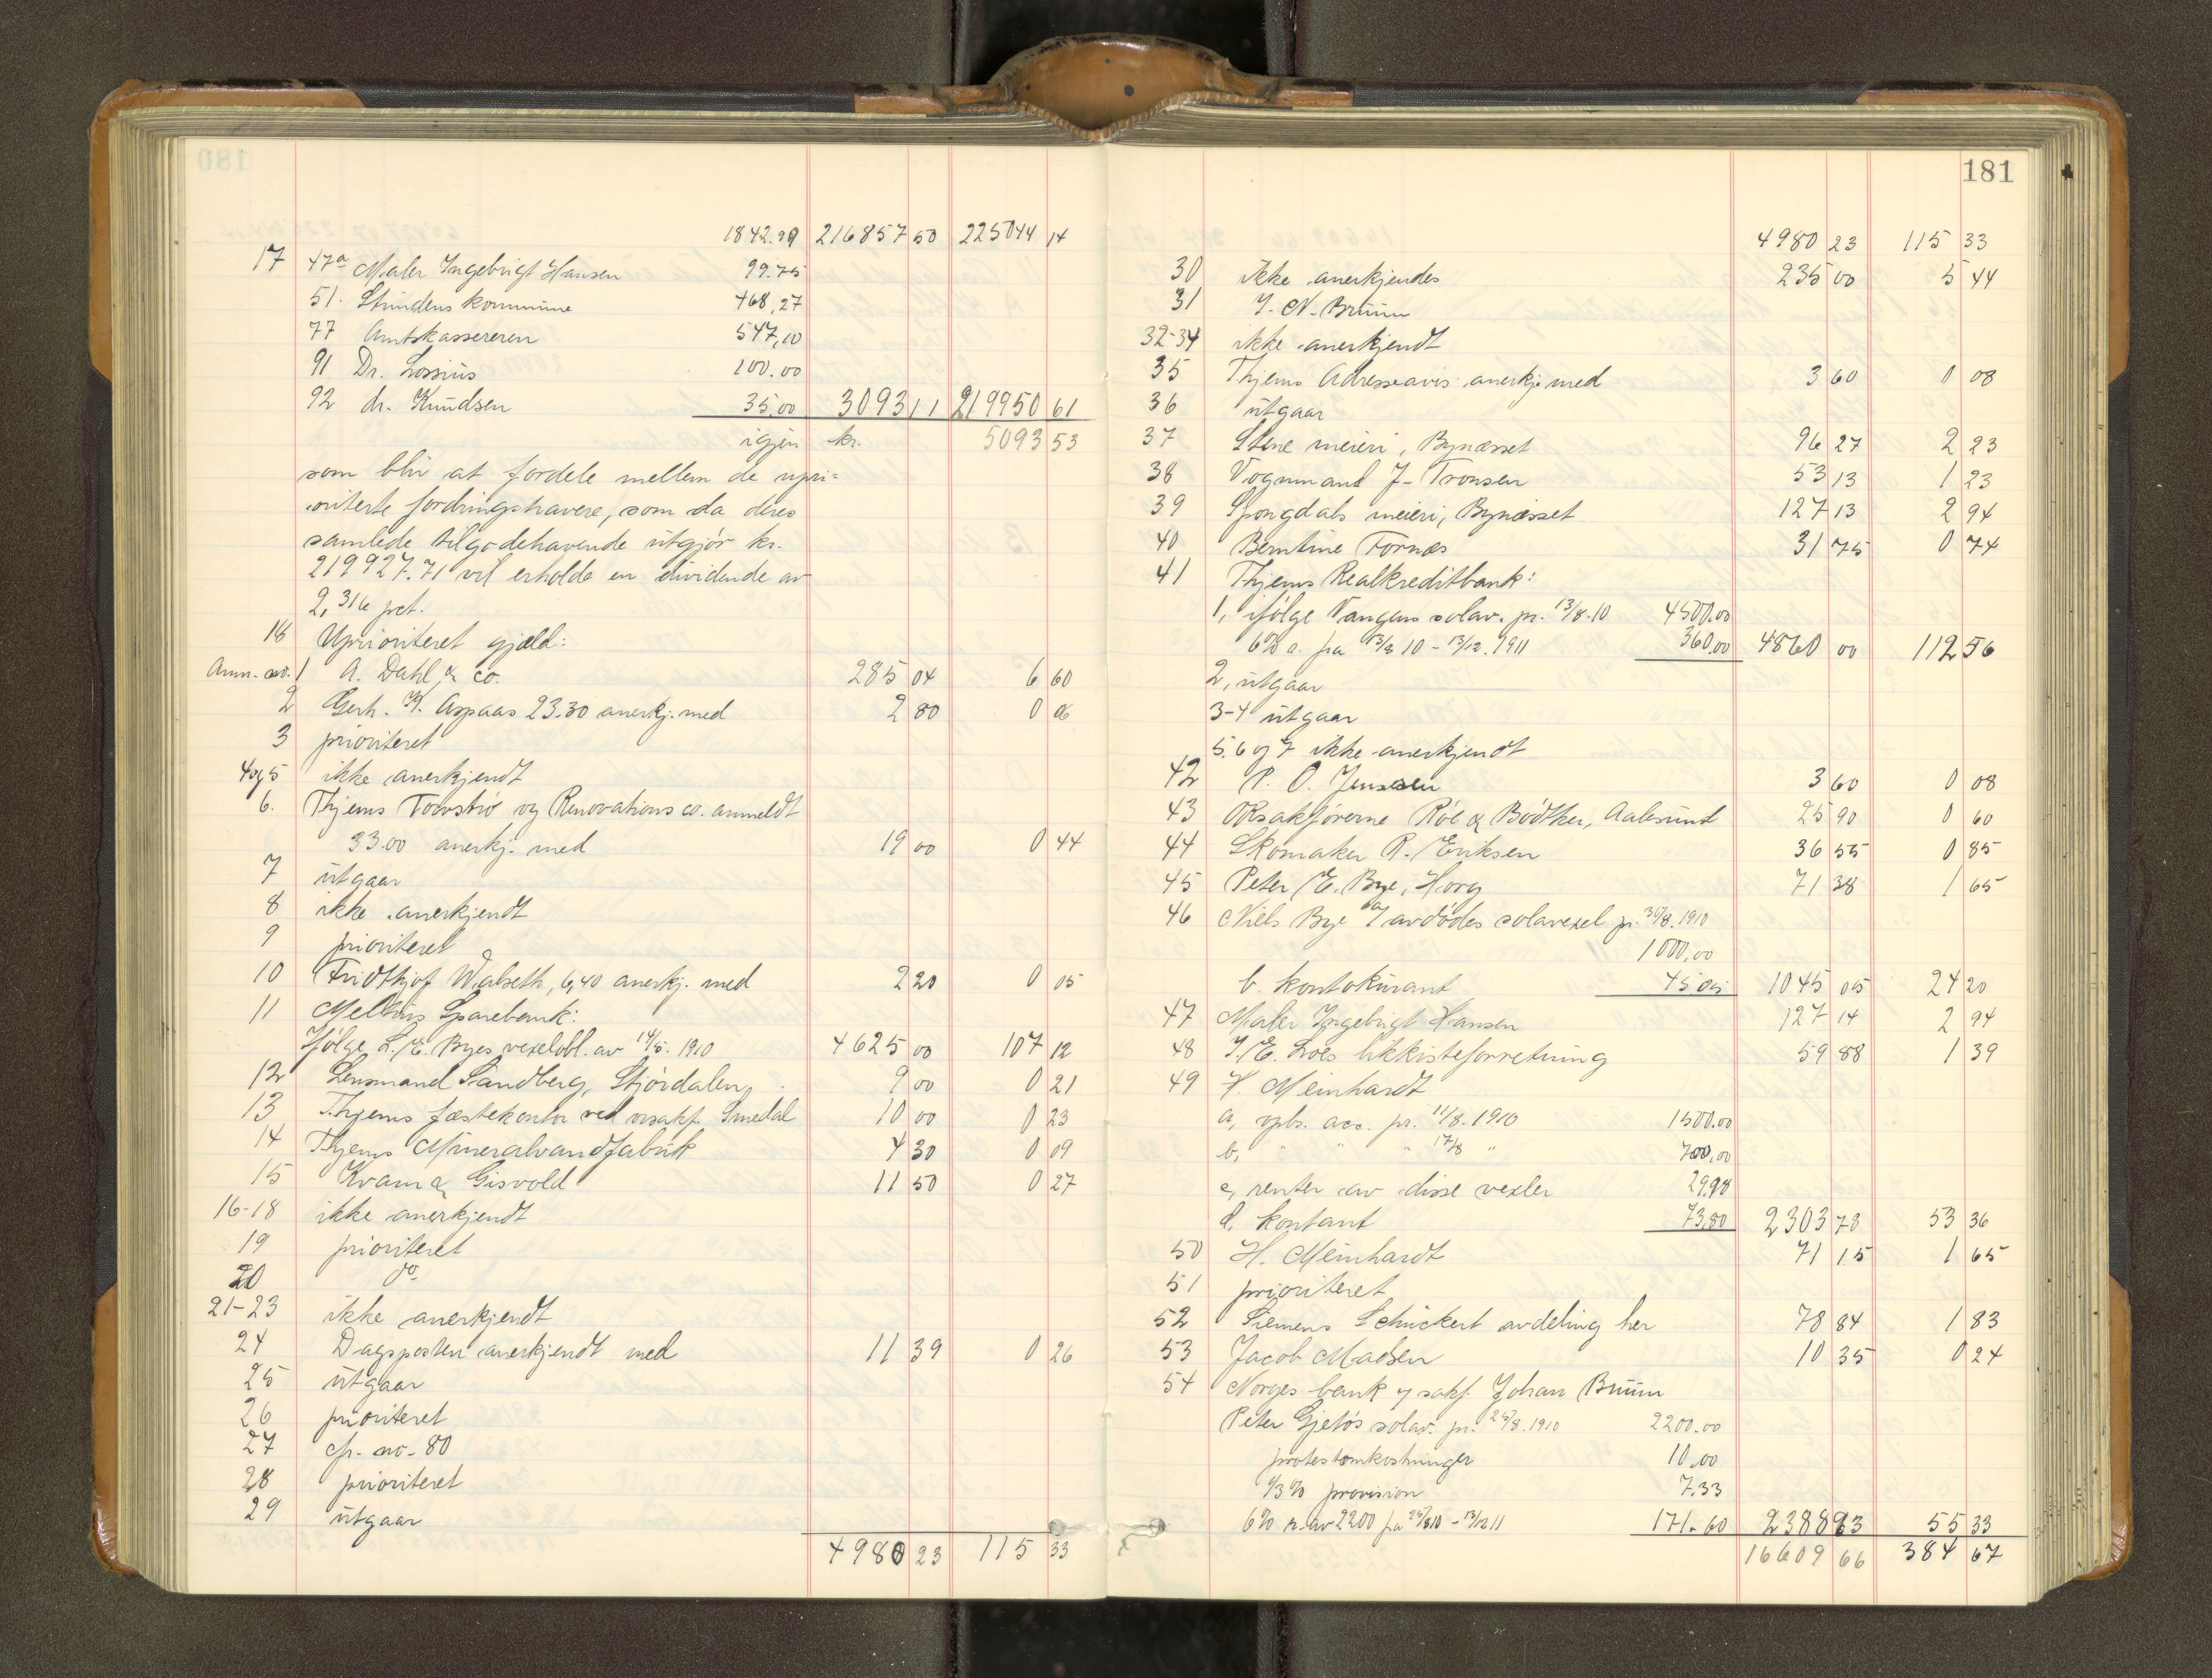 180
1842.99 216857 50 225044 14
17 47a Maler Ingebrigt Hansen 99.75
51. Strindens kommune 468,27
77 Amtskassereren 547,10
91 Dr. Lossius 100.00
92 dr. Knudsen 35,00 3093 11 219950 61
igjen kr. 5093 53
som blir at fordele mellem de upri-
oriterte fordringshavere, som da deres
samlede tilgodehavende utgjør kr.
219927.71 vil erholde en dividende av
2,316 pct.
18 Uprioriteret gjæld:
Anm. no. 1 A. Dahl & co. 285 04 6 60
2 Gerh. K. Aspaas 23.30 anerkj. med 2 80 0 06
3 prioriteret
4 og 5 ikke anerkjendt
6. Thjems Torvstrø og Renovations co. anmeldt
33.00 anerkj. med 19 00 0 44
7 utgaar
8 ikke anerkjendt
9 prioriteret
10 Fridthjof Walseth, 6,40 anerkj. med 2 20 0 05
11 Melhus Sparebank:
Ifølge L. E. Byes vexelobl. av 14/5. 1910 4625 00 107 12
12 Lensmand Sandberg, Stjørdalen, 9 00 0 21
13 Thjems fæstekontor ved orsakf. Smedal 10 00 0 23
14 Thjems Mineralvandfabrik 4 30 0 09
15 Kvam & Gisvold 11 50 0 27
16-18 ikke anerkjendt
19 prioriteret
20 do
21-23 ikke anerkjendt
24 Dagsposten anerkjendt med 11 39 0 26
25 utgaar
26 prioriteret
27 cfr. no. 80
28 prioriteret
29 utgaar
4980 23 115 33
181
4980 23 115 33
30 ikke anerkjendes 235 00 5 44
31 J. N. Bruun
32-34 ikke anerkjendt
35 Thjems Adresseavis anerkj. med 3 60 0 08
36 utgaar
37 Stene meieri, Bynæsset 96 27 2 23
38 Vognmand J. Tronsen 53 13 1 23
39 Spongdals meieri, Bynæsset 127 13 2 94
40 Berntine Fornæs 31 75 0 74
41 Thjems Realkreditbank:
1, ifølge Vangens solav. pr. 13/8.10 4500.00
6% r. fra 13/8 10 - 13/12. 1911 360.00 4860 00 112 56
2, utgaar
3-4 utgaar
5. 6 og 7 ikke anerkjendt
42 P. O. Jenssen 3 60 0 08
43 ORsakførerne Røe & Bødtker, Aalesund 25 90 0 60
44 Skomaker R. Eriksen 36 55 0 85
45 Peter E. Bye, Horg 71 38 1 65
46 Niels Bye a/ avdødes solavexel pr. 30/8. 1910
1000,00
b. kontokurant 45 05 1045 05 24 20
47 Maler Ingebrigt Hansen 127 14 2 94
48 J. E. Loes likkisteforretning 59 88 1 39
49 H. Meinhardt
a, vpb. acc. pr. 11/8. 1910 1500.00
b, " " " 17/8 " 700,00
c, renter av disse vexler 29.98
d. kontant 73,80 2303 78 53 36
50 H. Meinhardt 71 15 1 65
51 prioriteret
52 Siemens Schuckert avdeling her 78 84 1 83
53 Jacob Madsen 10 35 0 24
54 Norges bank v sakf. Johan Bruun
Peter Gjetøs solav. pr. 25/8. 1910 2200.00
protestomkostninger 10.00
1/3 % provision 7.33
6% r. av 2200 fra 25/8 10 - 13/12 11 171.60 2388 93 55 33
16609 66 384 67